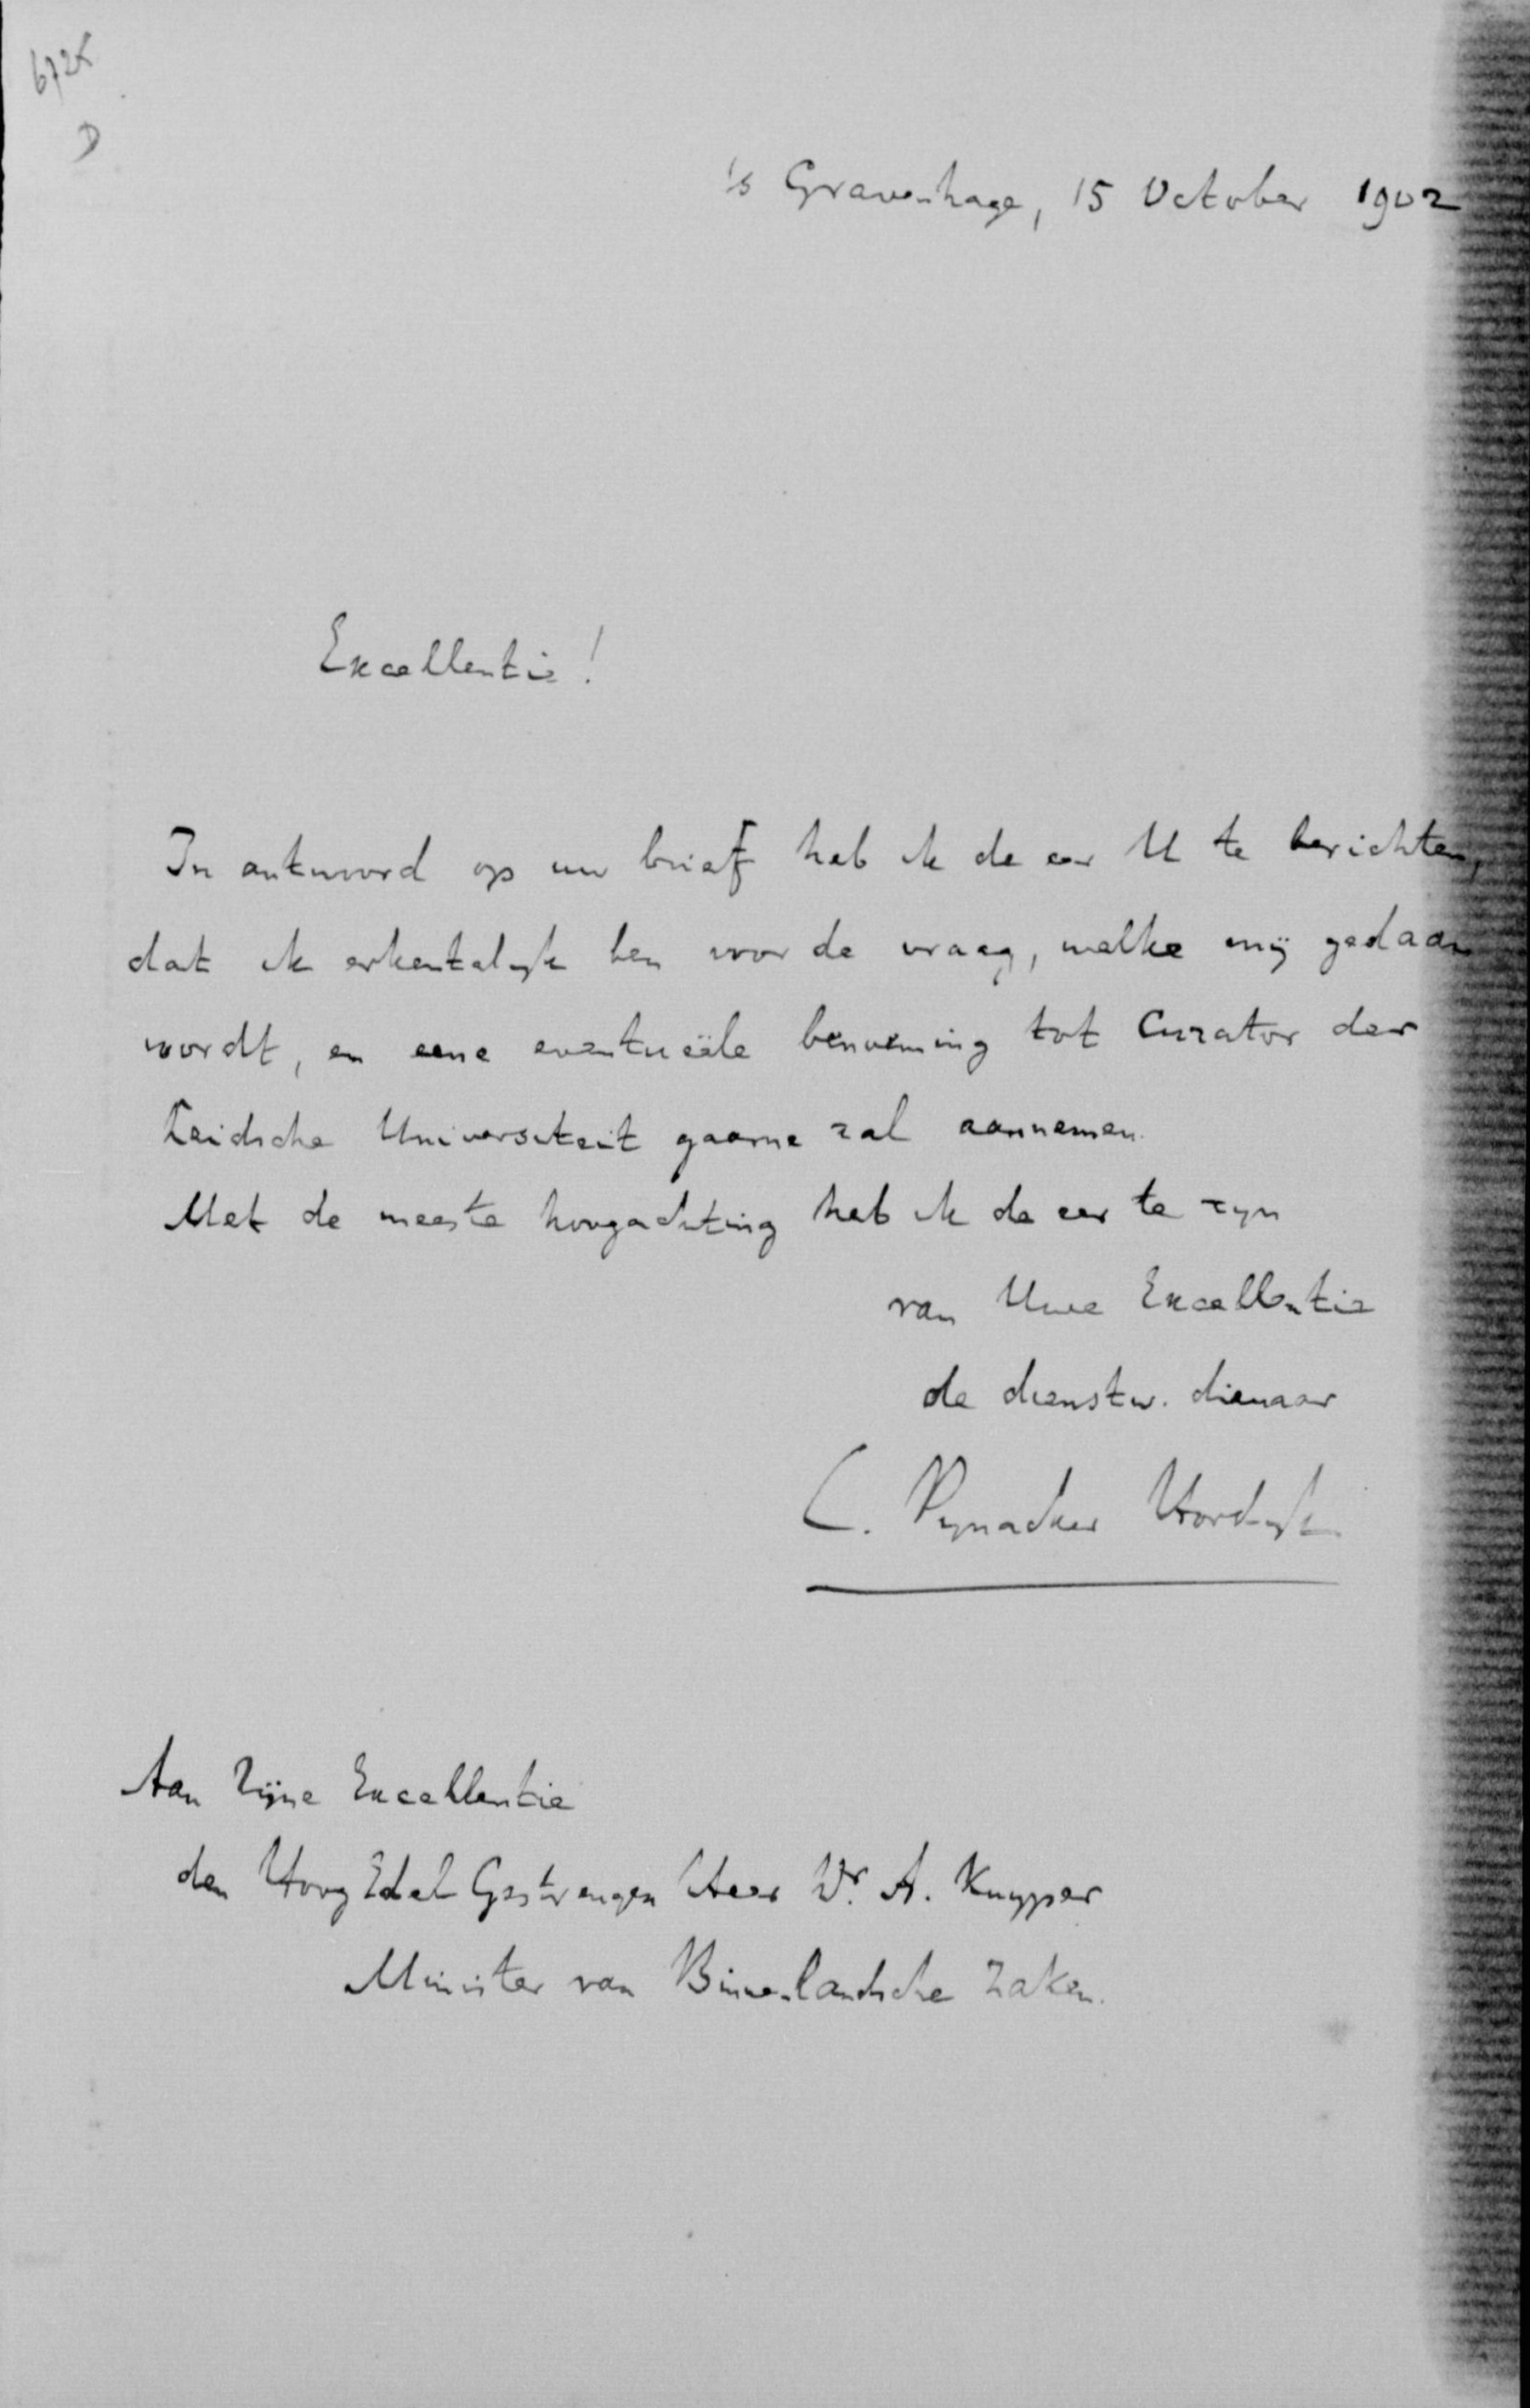 D
's Gravenhage, 15 October 1902
Excellentie!
In antwoord op uw brief heb ik de eer U te berichten,
dat ik erkentelijk ben voor de vraag, welke mij gedaan
wordt, en eene eventueële benoeming tot Curator der
Leidsche Universiteit gaarne zal aannemen.
Met de meeste hoogachting heb ik de eer te zyn
van Uwe Excellentie
de dienstw. dienaar
C. Pynacker Hordyk
Aan Zijne Excellentie
den Hoog Edel Gestrengen Heer Dr. A. Kuyper
Minister van Binnenlandsche Zaken.